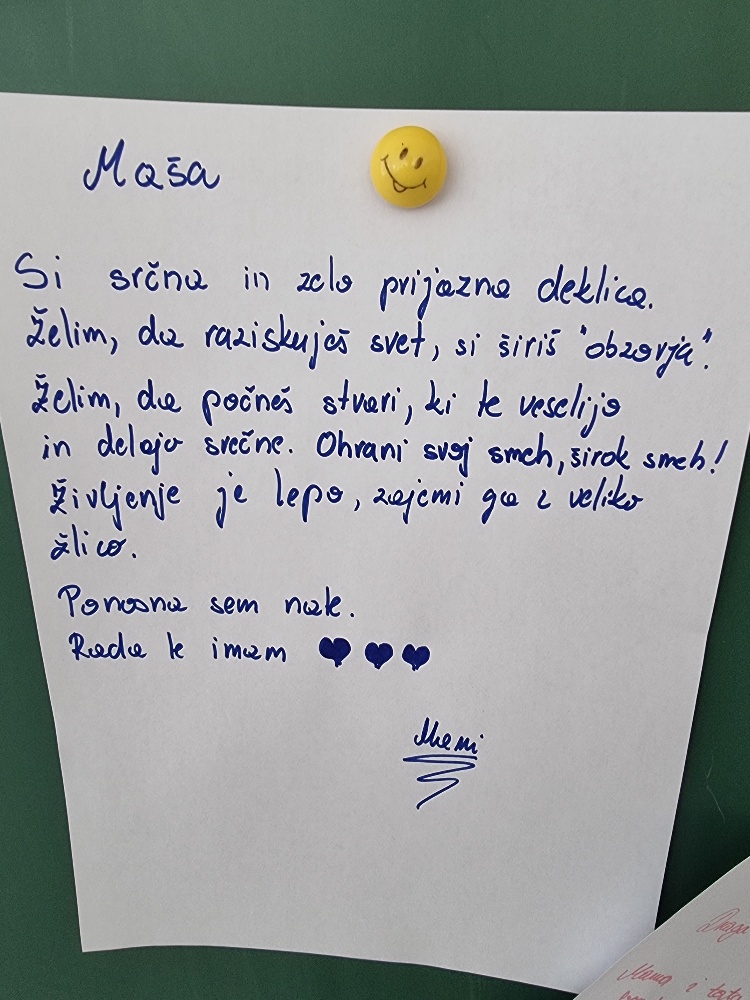 Maša
Si srčna in zelo prijazna deklica.
Želim, da raziskuješ svet, si širiš "obzorja".
Želim, da počneš stvari, ki te veselijo
in delajo srečne. Ohrani svoj smeh, širok smeh!
Življenje je lepo, zajemi ga z veliko
žlico.
Ponosna sem nate.
Rada te imam ♥ ♥ ♥
Mami
Mama i